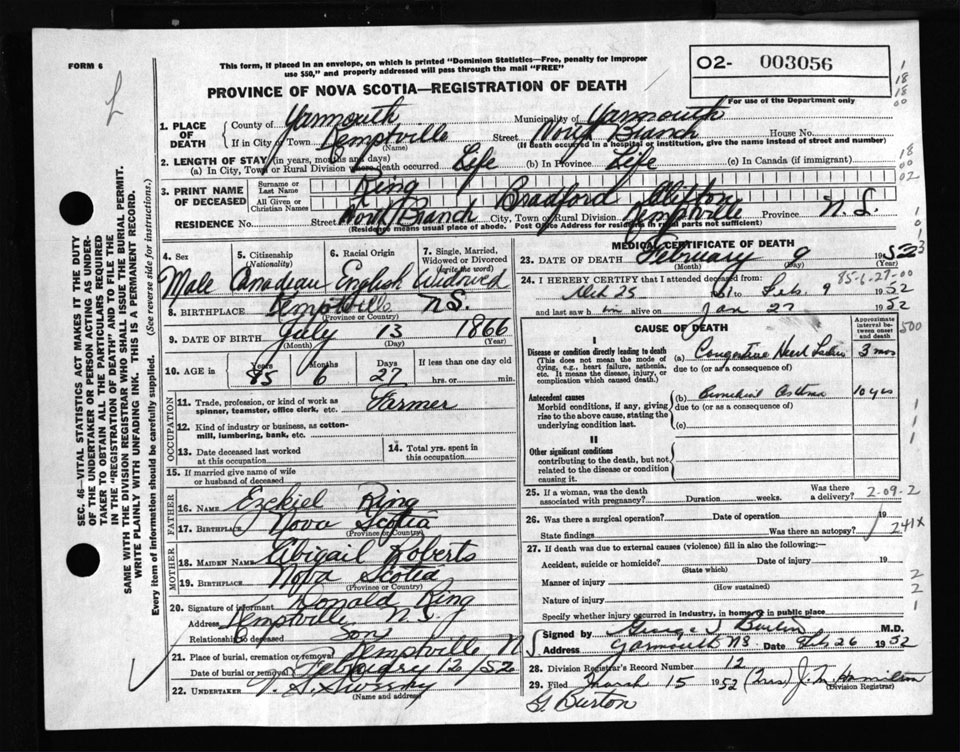 FORM 6
This form, if placed in an envelope, on which is printed "Dominion Statistics—Free, penalty for improper
use $50," and properly addressed will pass through the mail "FREE"
02- 003056
For use of the Department only
PROVINCE OF NOVA SCOTIA—REGISTRATION OF DEATH
1. PLACE OF DEATH County of Yarmouth Municipality of Yarmouth
If in City or Town Kemptville (Name) Street North Branch House No.
(If death occurred in a hospital or institution, give the name instead of street and number)
2. LENGTH OF STAY (in years, months and days)
(a) In City, Town or Rural Division where death occurred Life (b) In Province Life (c) In Canada (if immigrant)
3. PRINT NAME OF DECEASED Surname or Last Name Ring
All Given or Christian Names Bradford Clifton
RESIDENCE No. Street North Branch City, Town or Rural Division Kemptville Province N.S.
(Residence means usual place of abode. Post Office Address for residents in rural parts not sufficient)
4. Sex 5. Citizenship (Nationality) 6. Racial Origin 7. Single, Married, Widowed or Divorced (write the word)
Male Canadian English Widowed
8. BIRTHPLACE Kemptville N.S.
(Province or Country)
9. DATE OF BIRTH July 13 1866
(Month) (Day) (Year)
10. AGE in Years 85 Months 6 Days 27 If less than one day old
hrs. or min.
OCCUPATION
11. Trade, profession, or kind of work as
spinner, teamster, office clerk, etc. Farmer
12. Kind of industry or business, as cotton-
mill, lumbering, bank, etc.
13. Date deceased last worked
at this occupation
14. Total yrs. spent in
this occupation
15. If married give name of wife
or husband of deceased
FATHER
16. Name Ezekiel Ring
17. Birthplace Nova Scotia
(Province or Country)
MOTHER
18. MAIDEN NAME Abigail Roberts
19. BIRTHPLACE Nova Scotia
(Province or Country)
20. Signature of informant Donald Ring
Address Kemptville N.S.
Relationship to deceased Son
21. Place of burial, cremation or removal Kemptville N
Date of burial or removal February 12/52
22. UNDERTAKER
(Name and address)
MEDICAL CERTIFICATE OF DEATH
23. DATE OF DEATH February 9 1952
(Month) (Day) (Year)
24. I HEREBY CERTIFY that I attended deceased from:
85-6-27-00
Dec 25 1951 to Feb. 9 1952
and last saw him alive on Jan 27 1952
CAUSE OF DEATH
Approximate interval between onset and death
I
Disease or condition directly leading to death
(This does not mean the mode of
dying, e.g., heart failure, asthenia,
etc. It means the disease, injury, or
complication which caused death.)
(a) Congestive Heart Failure 3 mos
due to (or as a consequence of)
Antecedent causes
Morbid conditions, if any, giving
rise to the above cause, stating the
underlying condition last.
(b) Bronchial Asthma 10 yrs
due to (or as a consequence of)
(c)
II
Other significant conditions
contributing to the death, but not
related to the disease or condition
causing it.
25. If a woman, was the death
associated with pregnancy? Duration weeks. Was there a delivery?
2-09-2
26. Was there a surgical operation? Date of operation 19
State findings Was there an autopsy?
241X
27. If death was due to external causes (violence) fill in also the following:—
Accident, suicide or homicide? Date of injury 19
(State which)
Manner of injury
(How sustained)
Nature of injury
Specify whether injury occurred in industry, in home or in public place
Signed by George J Burton M.D.
Address Yarmouth NS Date Feb 26 1952
28. Division Registrar's Record Number 12
29. Filed March 15 1952 (Mrs) J. M. Hamilton
(Division Registrar)
G. Burton
SEC. 46—VITAL STATISTICS ACT MAKES IT THE DUTY
OF THE UNDERTAKER OR PERSON ACTING AS UNDER-
TAKER TO OBTAIN ALL THE PARTICULARS REQUIRED
IN THE "REGISTRATION OF DEATH" AND TO FILE THE
SAME WITH THE DIVISION REGISTRAR WHO SHALL ISSUE THE BURIAL PERMIT.
WRITE PLAINLY WITH UNFADING INK. THIS IS A PERMANENT RECORD.
Every item of information should be carefully supplied. (See reverse side for instructions.)